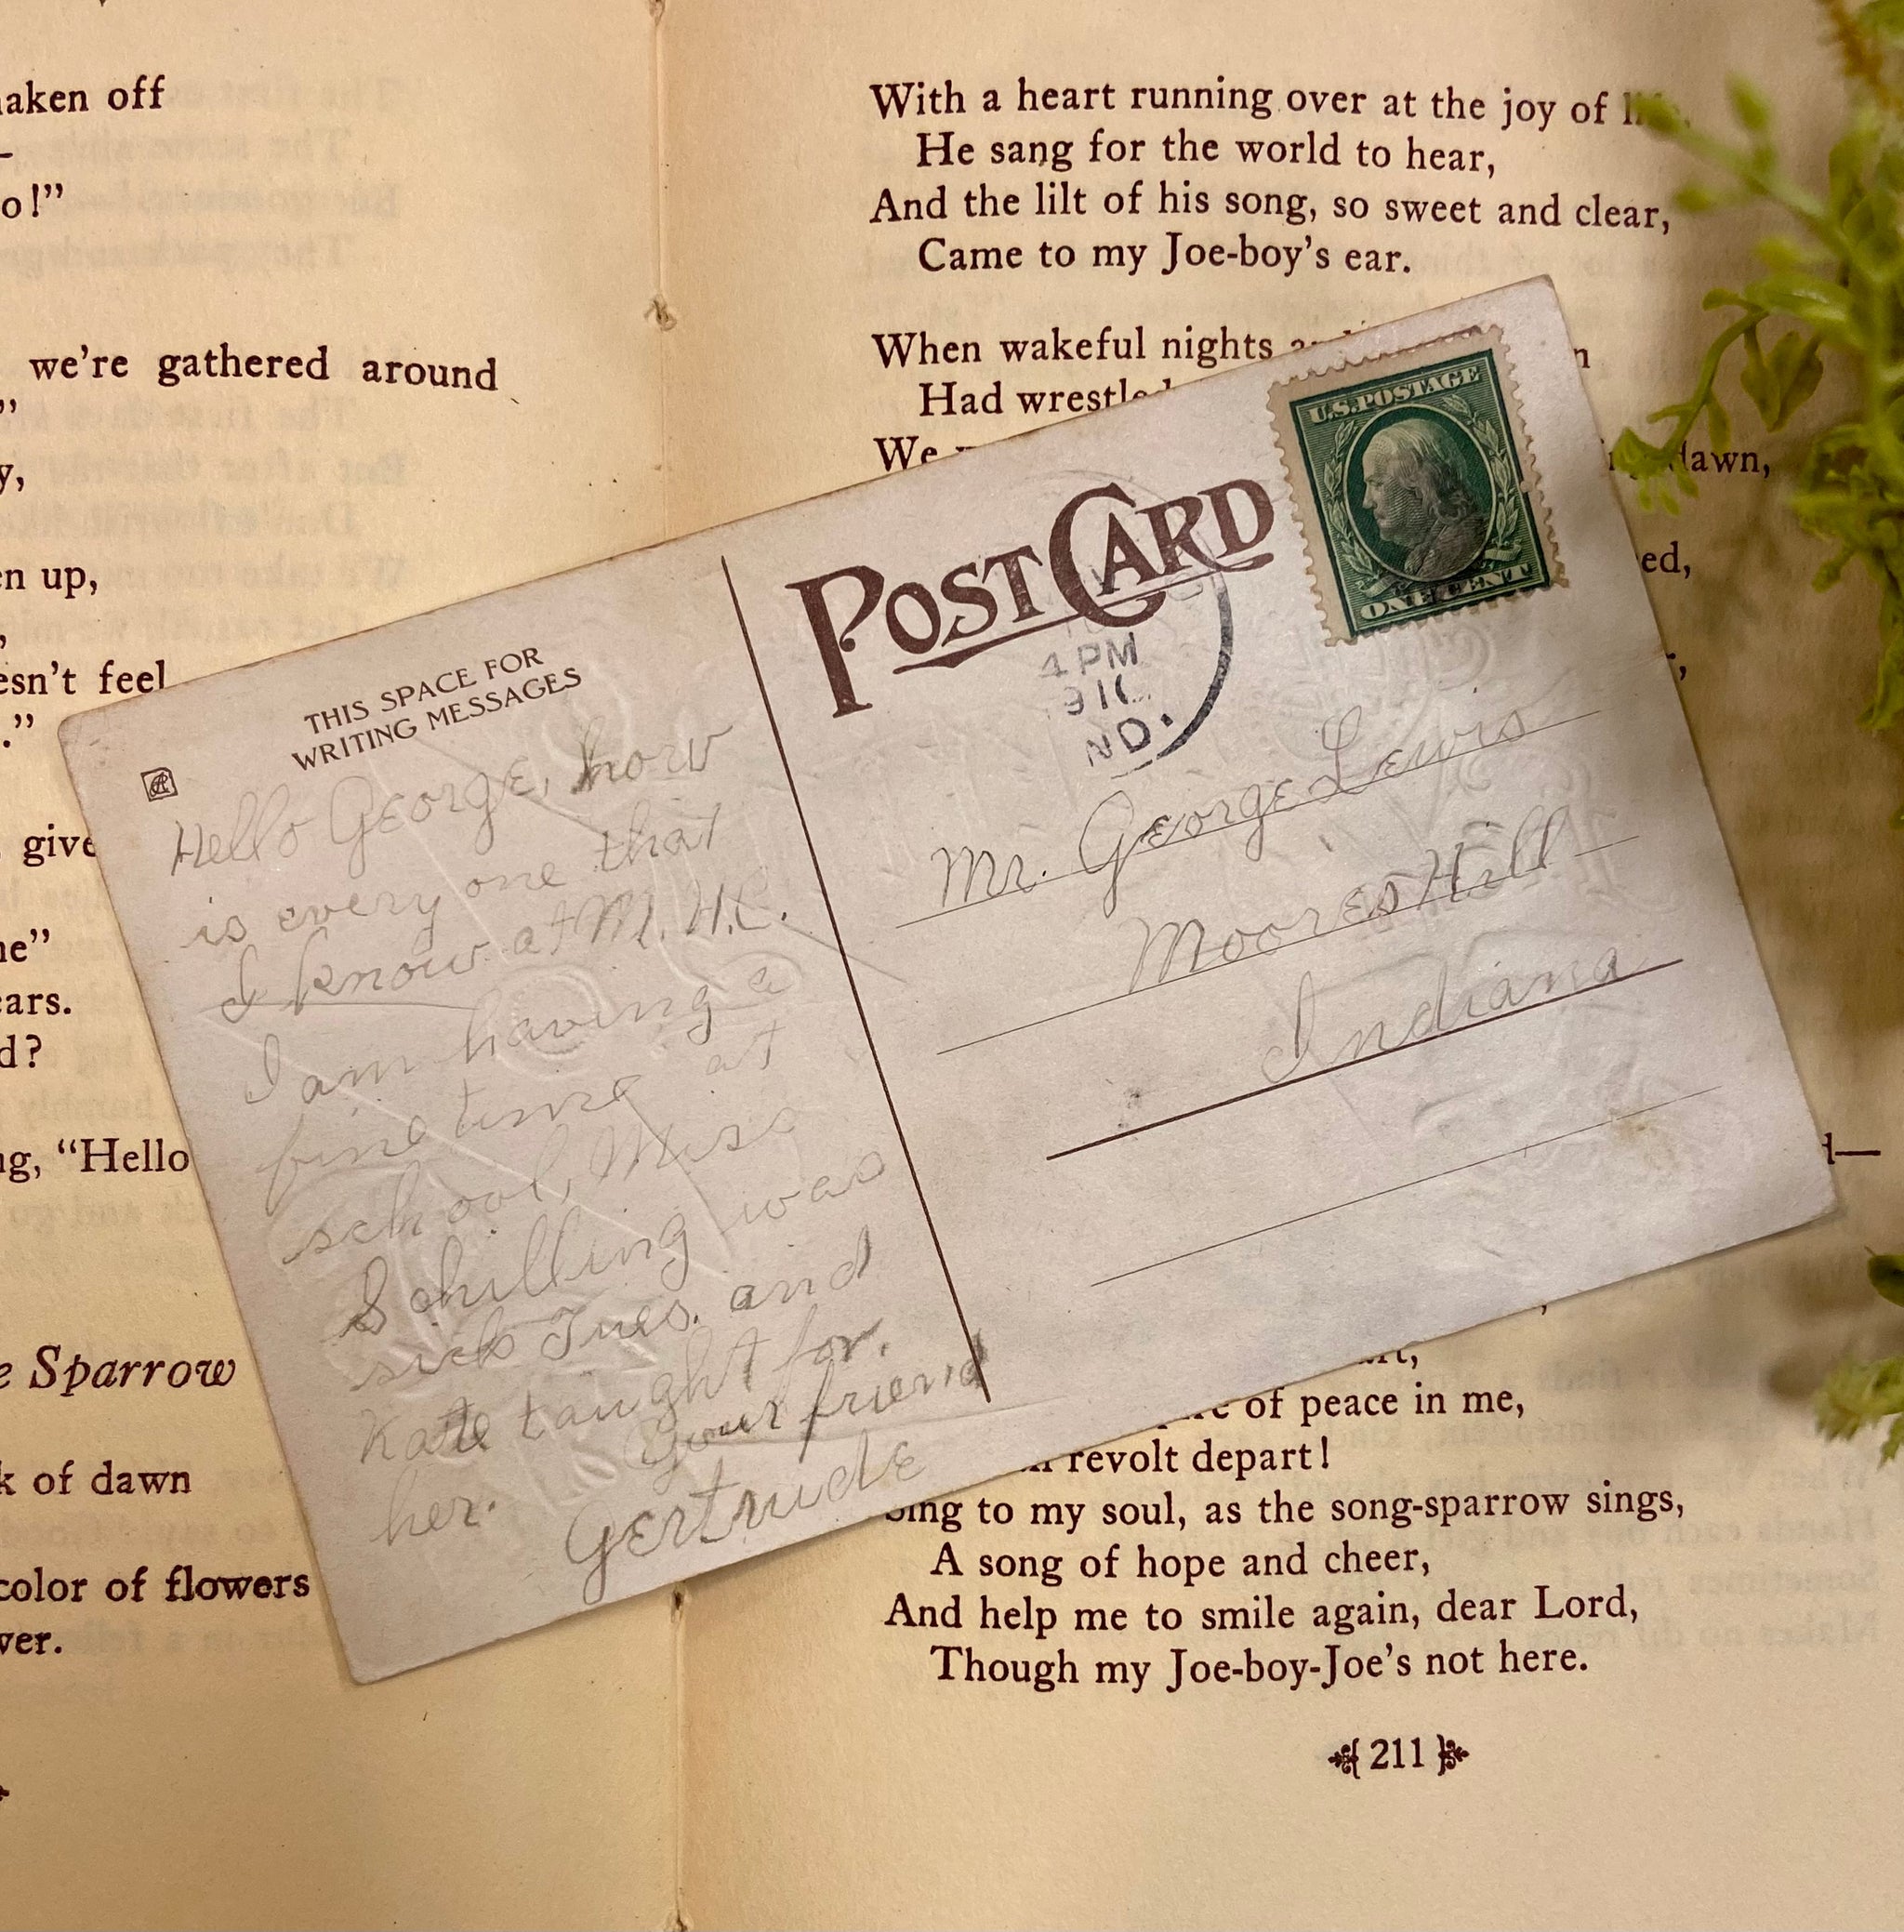 haken off
—
o!”
we're gathered around
”
y,
en up,
esn't feel
.”
give
ne”
ears.
d?
ng, “Hello
e Sparrow
k of dawn
color of flowers
ver.
With a heart running over at the joy of
He sang for the world to hear,
And the lilt of his song, so sweet and clear,
Came to my Joe-boy's ear.
When wakeful nights
Had wrestled
We
dawn,
ed,
of peace in me,
revolt depart!
Sing to my soul, as the song-sparrow sings,
A song of hope and cheer,
And help me to smile again, dear Lord,
Though my Joe-boy-Joe's not here.
211
THIS SPACE FOR
WRITING MESSAGES
Hello George, how
is every one that
I know at M.H.C.
I am having a
fine time at
school, Miss
Schilling was
sick Tues. and
Kate taught for.
her.
Your friend
Gertrude
POST CARD
4 PM
IND.
U.S. POSTAGE
ONE CENT
Mr. George Lewis
Moores Hill
Indiana